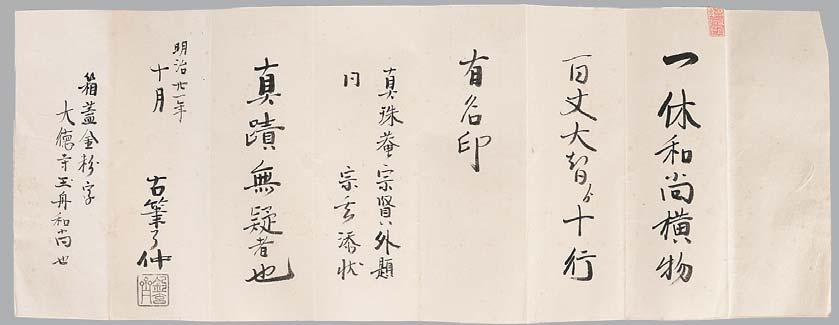 一休和尚横物
百丈大智ゟ十行
有名印
真珠菴宗賢外題
同　宗玄添状
真蹟無疑者也
明治廿一年
十月
古筆了仲
箱蓋金粉字
大徳寺玉舟和尚也